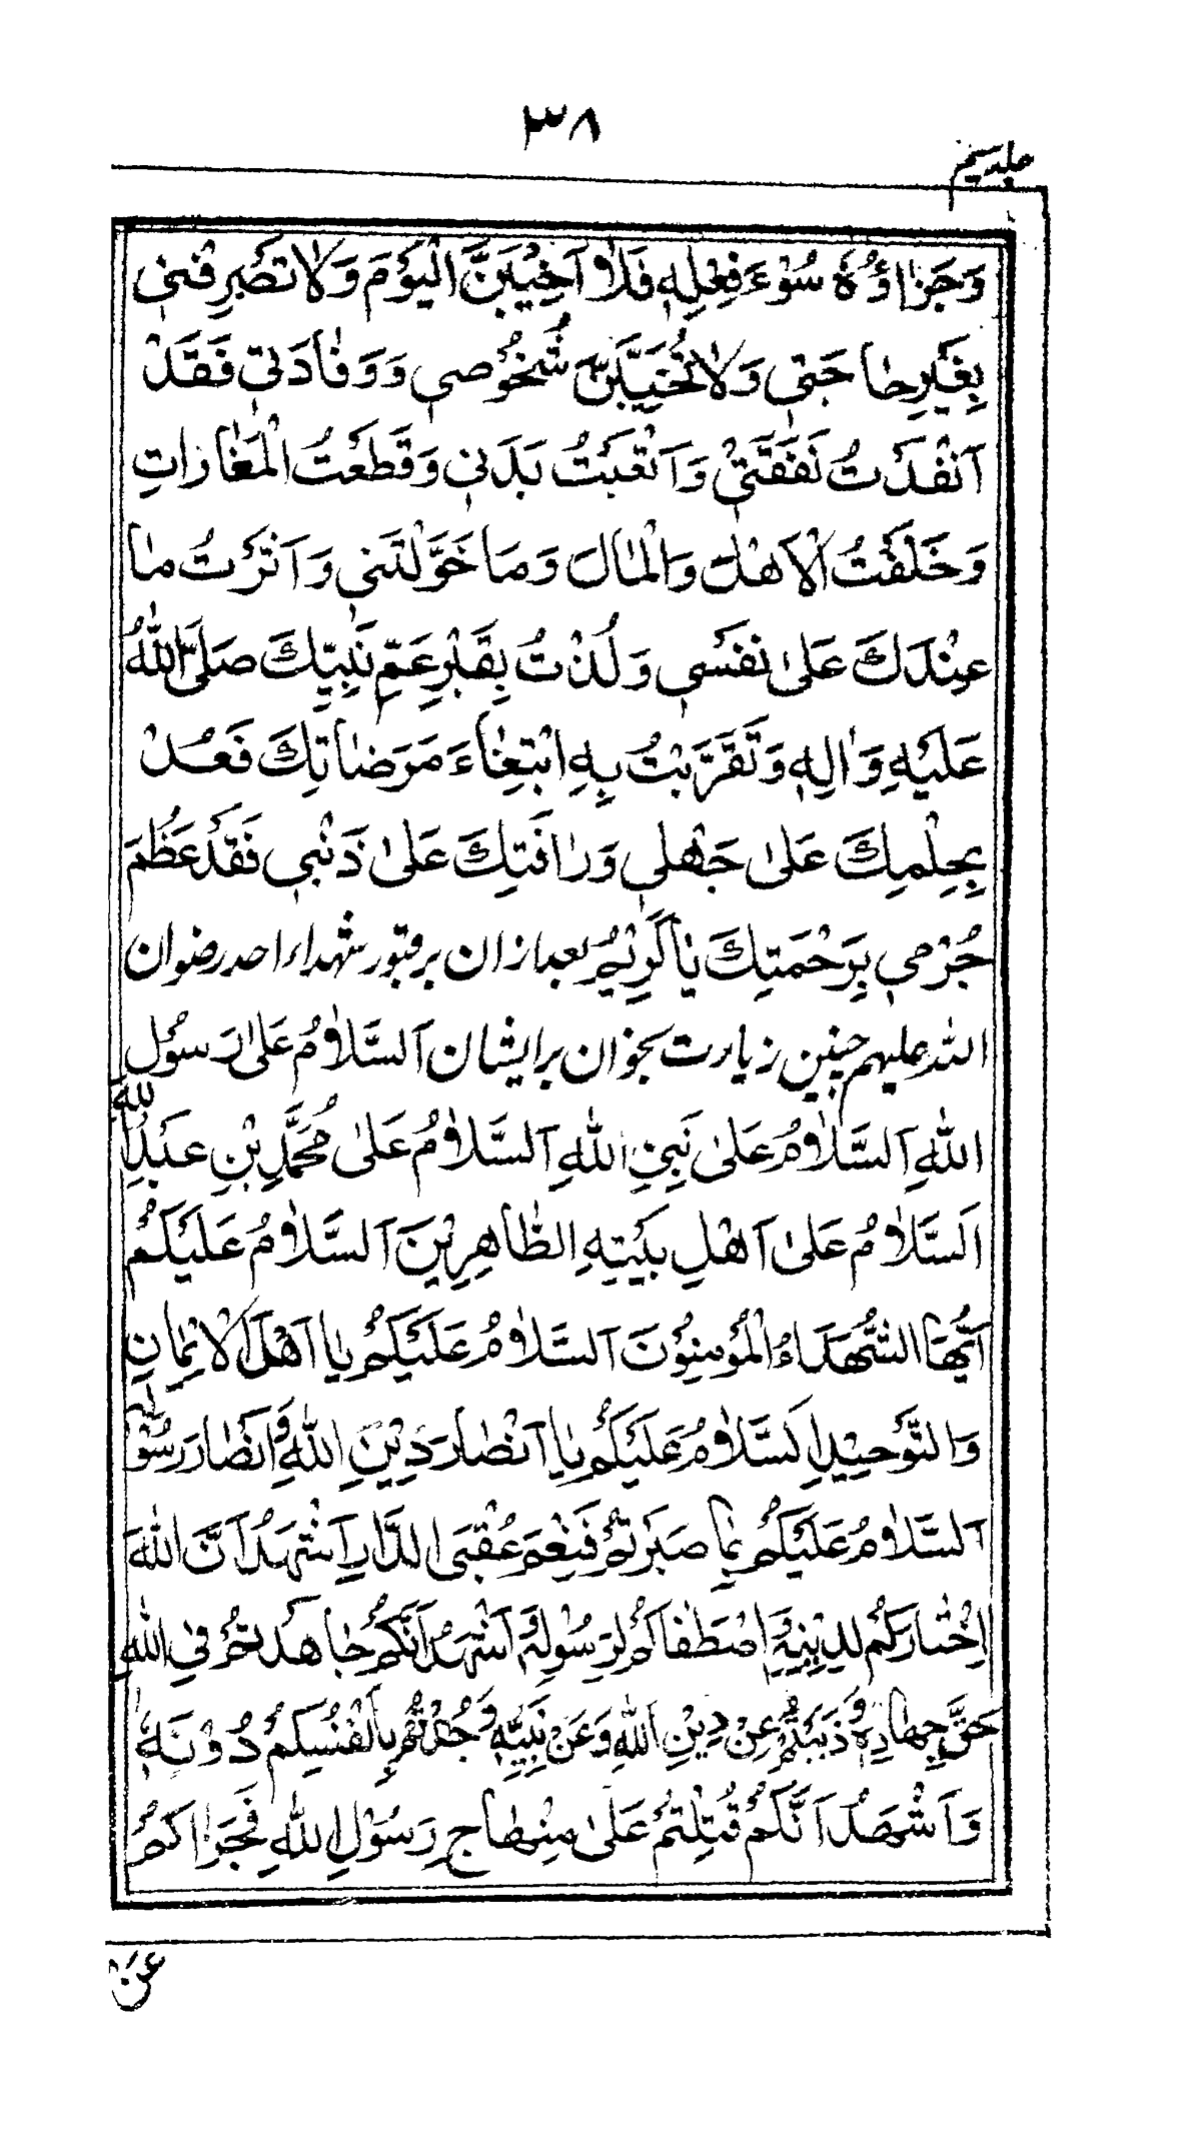 ۳۸
جلد سیم
وَجَزاؤُهُ سُوْءَ فِعْلِهِ فَلَا اَخِيْبَنَّ الْيَوْمَ وَلَا تَصْرِفْنِي
بِغَيْرِ حاجَتِي وَلَا تُخَيِّبَنَّ شُخُوْصِي وَوَفادَتِي فَقَدْ
اَنْفَدْتُ نَفَقَتِيْ وَاَتْعَبْتُ بَدَنِي وَقَطَعْتُ الْمَفازاتِ
وَخَلَّفْتُ الْاَهْلَ وَالْمالَ وَمَا خَوَّلْتَنِي وَاٰثَرْتُ ما
عِنْدَكَ عَلىٰ نَفْسِي وَلُذْتُ بِقَبْرِ عَمِّ نَبِيِّكَ صَلَّى اللهُ
عَلَيْهِ وَاٰلِهِ وَتَقَرَّبْتُ بِهِ ابْتِغاءَ مَرَضاتِكَ فَعُدْ
بِحِلْمِكَ عَلىٰ جَهْلِي وَرَافَتِكَ عَلىٰ ذَنْبِي فَقَدْ عَظُمَ
جُرْمِي بِرَحْمَتِكَ ياكَرِيْمُ بعد ازان بر قبور شهداء احد رضوان
الله علیهم چنین زیارت بخوان بر ایشان اَلسَّلامُ عَلىٰ رَسُوْلِ
اللهِ اَلسَّلامُ عَلىٰ نَبِيِّ اللهِ اَلسَّلامُ عَلىٰ مُحَمَّدِ بْنِ عَبْدِ اللهِ
اَلسَّلامُ عَلىٰ اَهْلِ بَيْتِهِ الطّاهِرِيْنَ اَلسَّلامُ عَلَيْكُمْ
اَيُّهَا الشُّهَداءُ الْمُؤْمِنُوْنَ اَلسَّلامُ عَلَيْكُمْ يا اَهْلَ الْاِيْمانِ
وَالتَّوْحِيْدِ اَلسَّلامُ عَلَيْكُمْ يا اَنْصارَ دِيْنِ اللهِ وَاَنْصارَ رَسُوْلِهِ
اَلسَّلامُ عَلَيْكُمْ بِما صَبَرْتُمْ فَنِعْمَ عُقْبَى الدّارِ اَشْهَدُ اَنَّ اللهَ
اِخْتارَكُمْ لِدِيْنِهِ وَاصْطَفاكُمْ لِرَسُوْلِهِ اَشْهَدُ اَنَّكُمْ جاهَدْتُمْ فِي اللهِ
حَقَّ جِهادِهِ وَذَبَبْتُمْ عَنْ دِيْنِ اللهِ وَعَنْ نَبِيِّهِ وَجُدْتُمْ بِاَنْفُسِكُمْ دُوْنَهُ
وَاَشْهَدُ اَنَّكُمْ قُتِلْتُمْ عَلىٰ مِنْهاجِ رَسُوْلِ اللهِ فَجَزاكُمُ
عَنْ